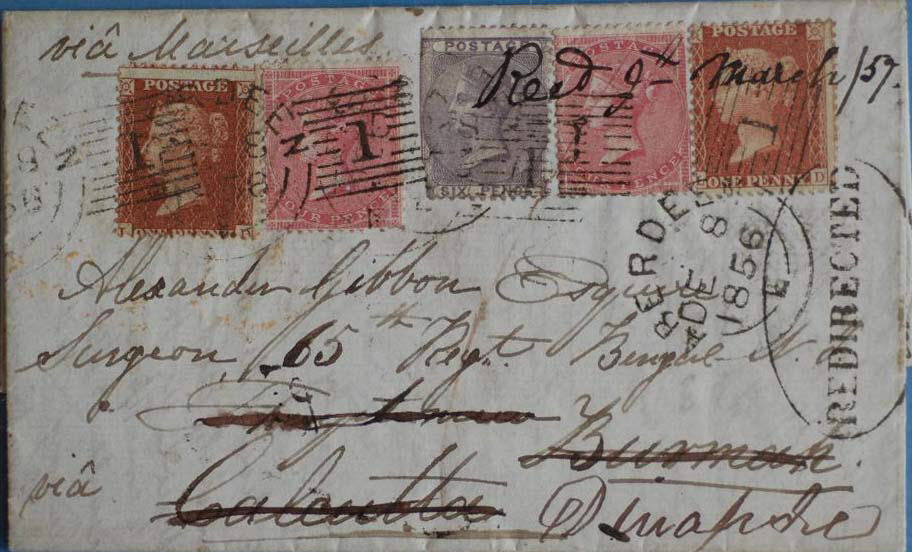 viâ Marseilles
Recd 9th March/57.
POSTAGE
ONE PENNY
POSTAGE
FOUR PENCE
POSTAGE
SIX PENCE
POSTAGE
FOUR PENCE
POSTAGE
ONE PENNY
D
1
1
1
1
ABERDEEN
DE 8
1856
E
REDIRECTED
Alexander Gibbon Esquire
Surgeon 65th Regt. Bengal N.
Burmah.
viâ Calcutta
Dinapore